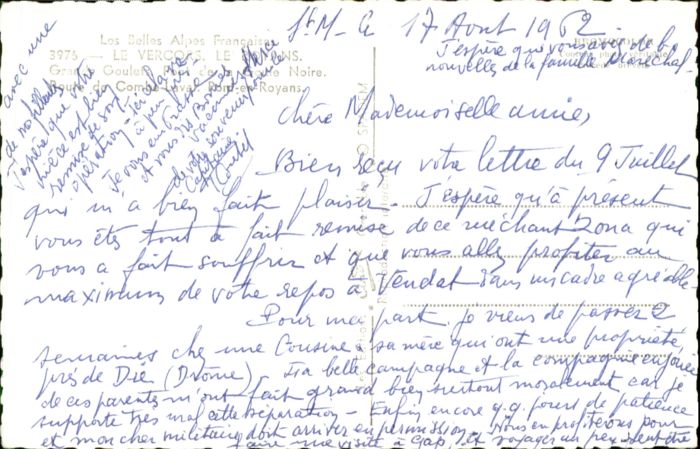 Les Belles Alpes Françaises
3975 - LE VERCORS. LE ROYANS.
Route de Combe Laval Pont-en-Royans.
St M-
17 Aout 1962
J'espère que vous avez de b.
nouvelles de la famille Maréchal.
Chère Mademoiselle amie,
Bien reçu votre lettre du 9 Juillet
qui m'a bien fait plaisir. J'espère qu'à présent
vous êtes tout à fait remise de ce méchant Zona qui
vous a fait souffrir et que vous allez profiter au
maximum de votre repos à Vendat dans un cadre agréable.
Pour ma part je viens de passer 2
semaines chez une Cousine & sa mère qui ont une propriété,
près de Die (Drôme). La belle campagne et la compagnie enjouée
de ces parents m'ont fait grand bien surtout moralement car je
supporte très mal cette séparation - Enfin encore q.q. jours de patience
et mon cher militaire doit arriver en permission. Nous en profiterons pour
faire une visite à Gap, et voyager un peu
avec une
J'espère que
mère est bien
remise de son
opération -
Je vous embrasse
et vous dis Bonnes
Vacances